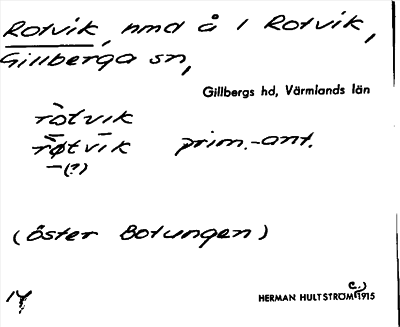 Rotvik, nmd å 1 Rotvik,
Gillberga sn,
Gillbergs hd, Värmlands län
ròtvik
rø̄tvīk prim.-ant.
-(?)
(öster Botungen)
HERMAN HULTSTRÖM (c.) 1915